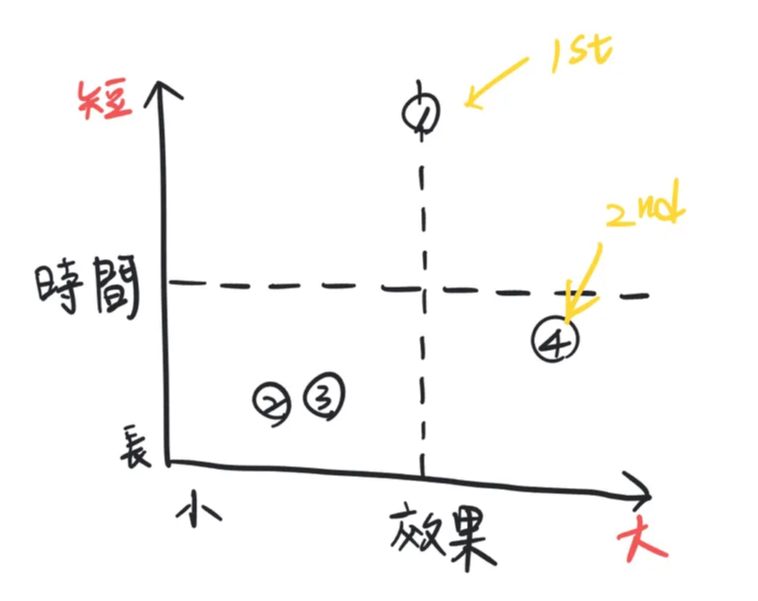 1st
短
①
2nd
時間
④
② ③
長
小
效果
大